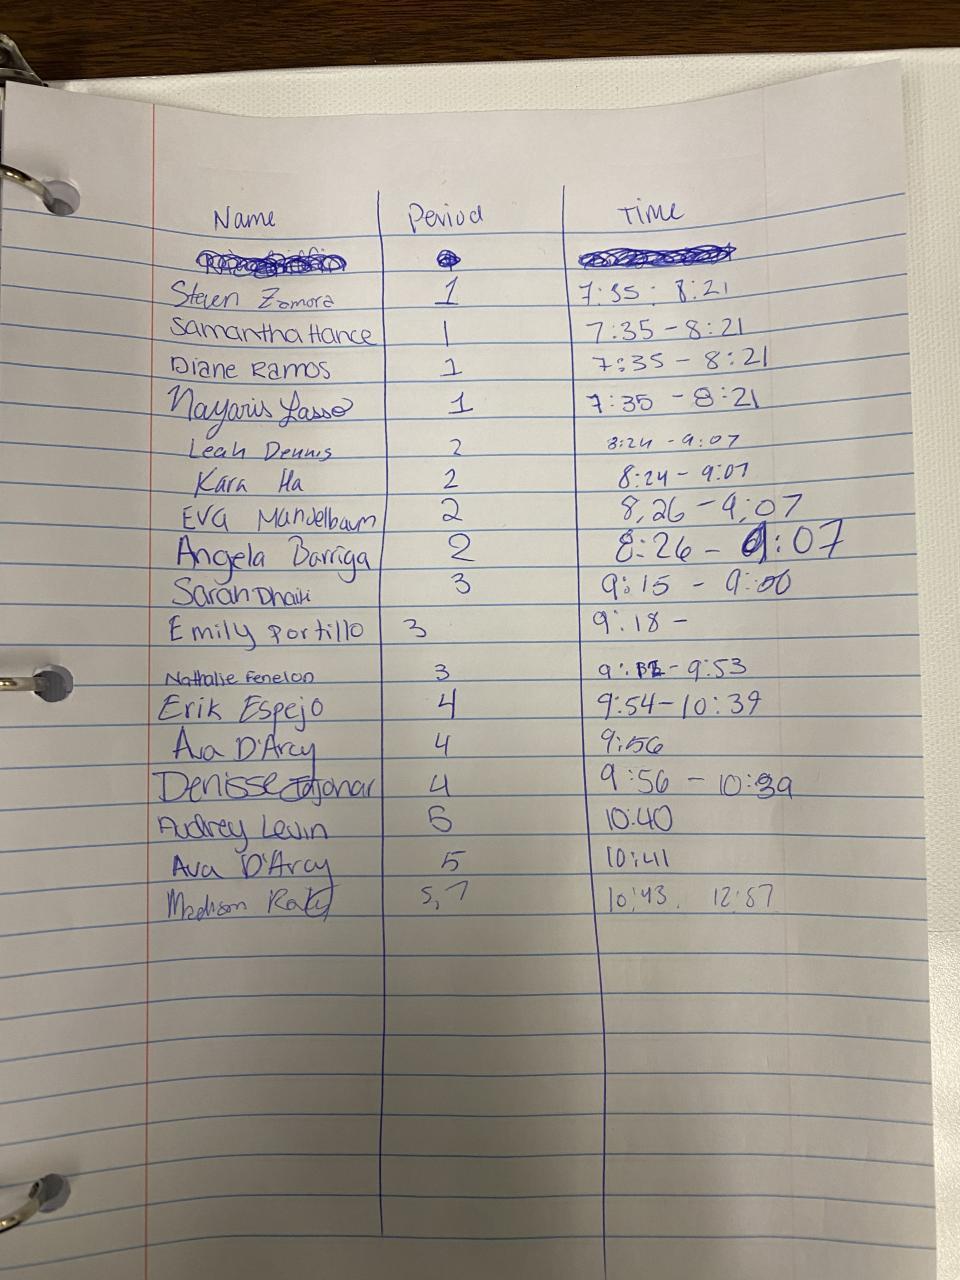 Name Period Time
Steven Zamora 1 7:35 : 8:21
Samantha Hance 1 7:35 - 8:21
Diane Ramos 1 7:35 - 8:21
Nayaris Lasso 1 7:35 - 8:21
Leah Dennis 2 8:24 - 9:07
Kara Ha 2 8:24 - 9:07
Eva Mandelbaum 2 8,26 - 9:07
Angela Barriga 2 8:26 - 9:07
Sarah Dhaiti 3 9:15 - 9:00
Emily Portillo 3 9:18 -
Nathalie Fenelon 3 - 9:53
Erik Espejo 4 9:54 - 10:39
Ava D'Arcy 4 9:56
Denisse 4 9:56 - 10:39
Audrey Levin 5 10:40
Ava D'Arcy 5 10:41
Madison 5, 7 10:43. 12:57